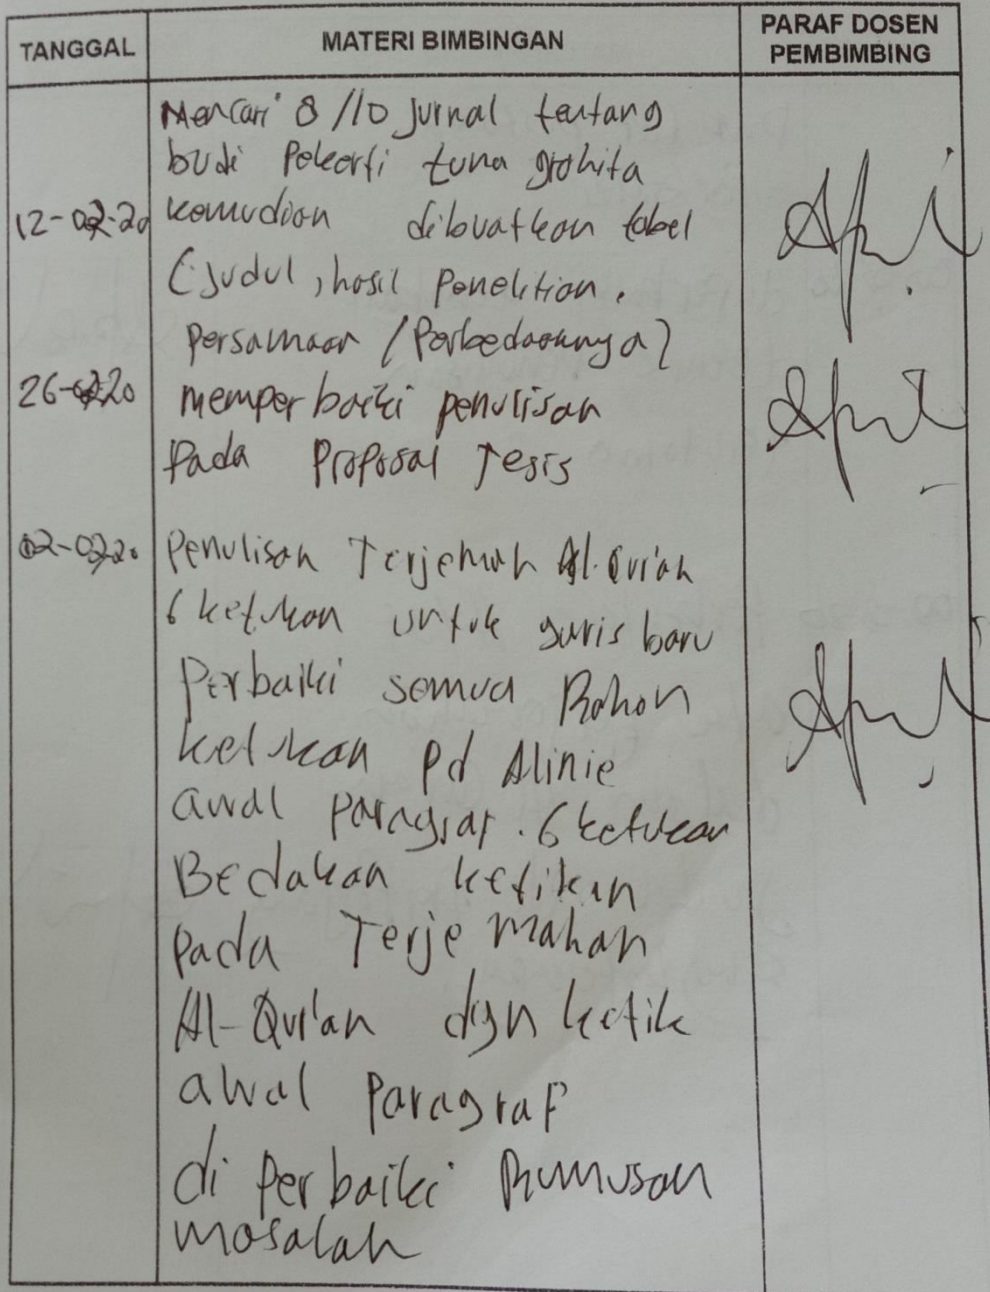 TANGGAL MATERI BIMBINGAN PARAF DOSEN PEMBIMBING
Mencari 8/10 Jurnal tentang
budi Pekerti tuna grahita
12-02-20 kemudian dibuatkan tabel
(Judul, hasil penelitian,
persamaan / Perbedaannya)
26-02-20 memperbaiki penulisan
Pada Proposal Tesis
Penulisan Terjemah Al-Qur'an
6 ketukan untuk garis baru
Perbaiki semua
ketukan pd Alinie
awal paragraf. 6 ketukan
Bedakan ketikan
pada Terjemahan
Al-Qur'an dgn ketik
awal Paragraf
di perbaiki Rumusan
masalah